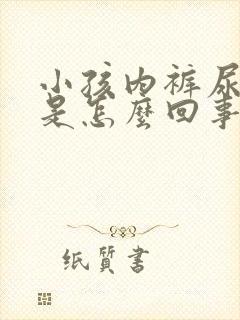 小孩内裤尿
是怎麼回事
纸質書